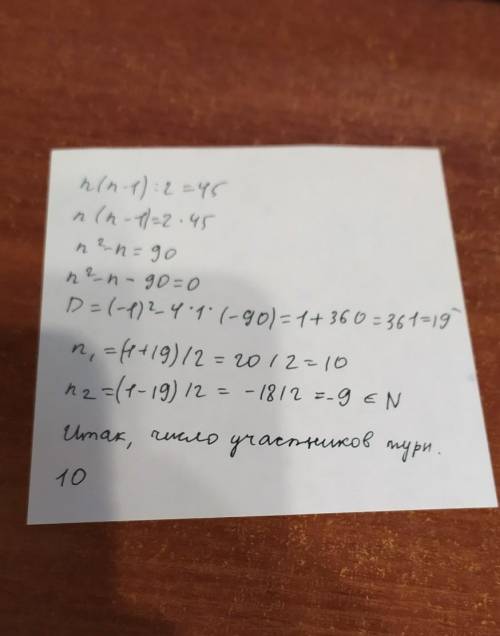 n(n-1):2=45
n(n-1)=2·45
n²-n=90
n²-n-90=0
D=(-1)²-4·1·(-90)=1+360=361=19²
n₁=(1+19)/2=20/2=10
n₂=(1-19)/2=-18/2=-9∈N
Итак, число участников турн.
10